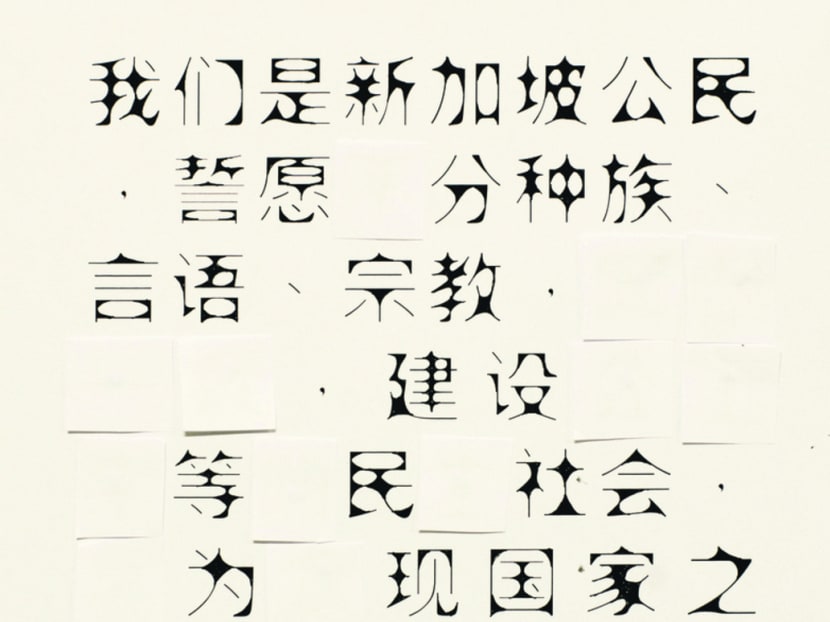 我们是新加坡公民
，誓愿 分种族、
言语、宗教，
，建设
等 民 社会，
为 现国家之